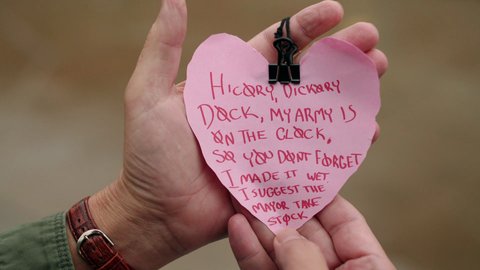 HICORY, DICKORY
DOCK, MY ARMY IS
ON THE CLOCK,
SO YOU DONT FORGET
I MADE IT WET.
I SUGGEST THE
MAYOR TAKE
STOCK